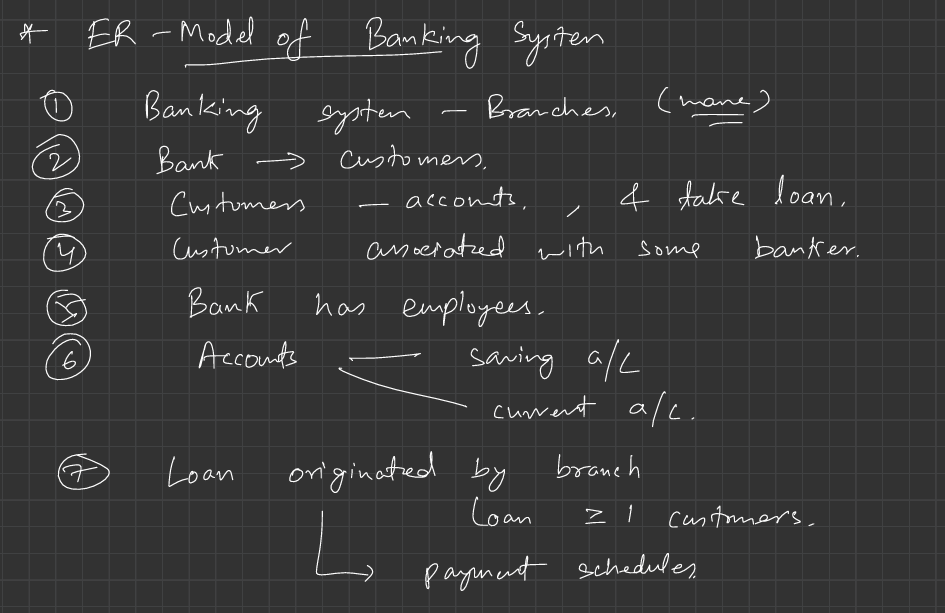 * ER - Model of Banking System
① Banking system - Branches. (name)
② Bank → customers.
③ Customers - accounts. , & take loan.
④ Customer associated with some banker.
⑤ Bank has employees.
⑥ Accounts — saving a/c
current a/c.
⑦ Loan originated by branch
Loan ≥ 1 customers.
→ payment schedules